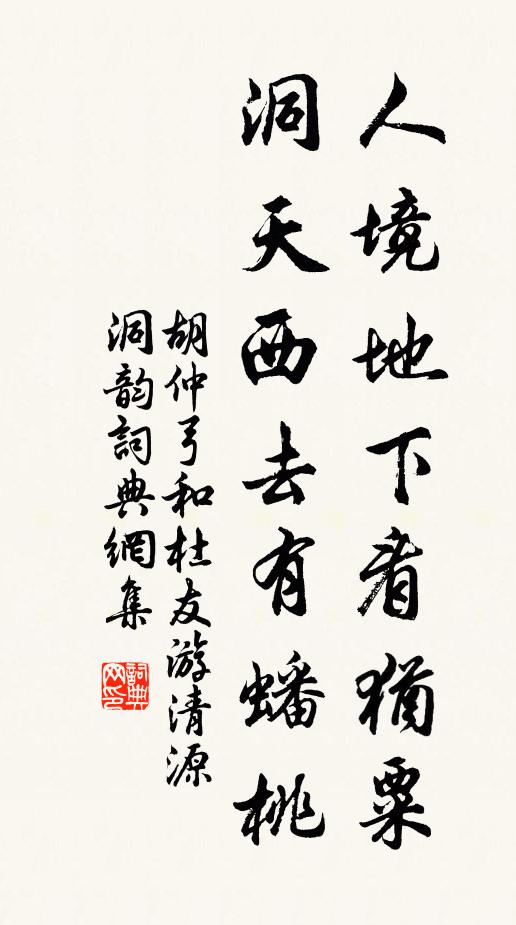 人境地下看猶粟
洞天西去有蟠桃
胡仲弓和杜友游清源
洞韵詞典網集
詞典网印